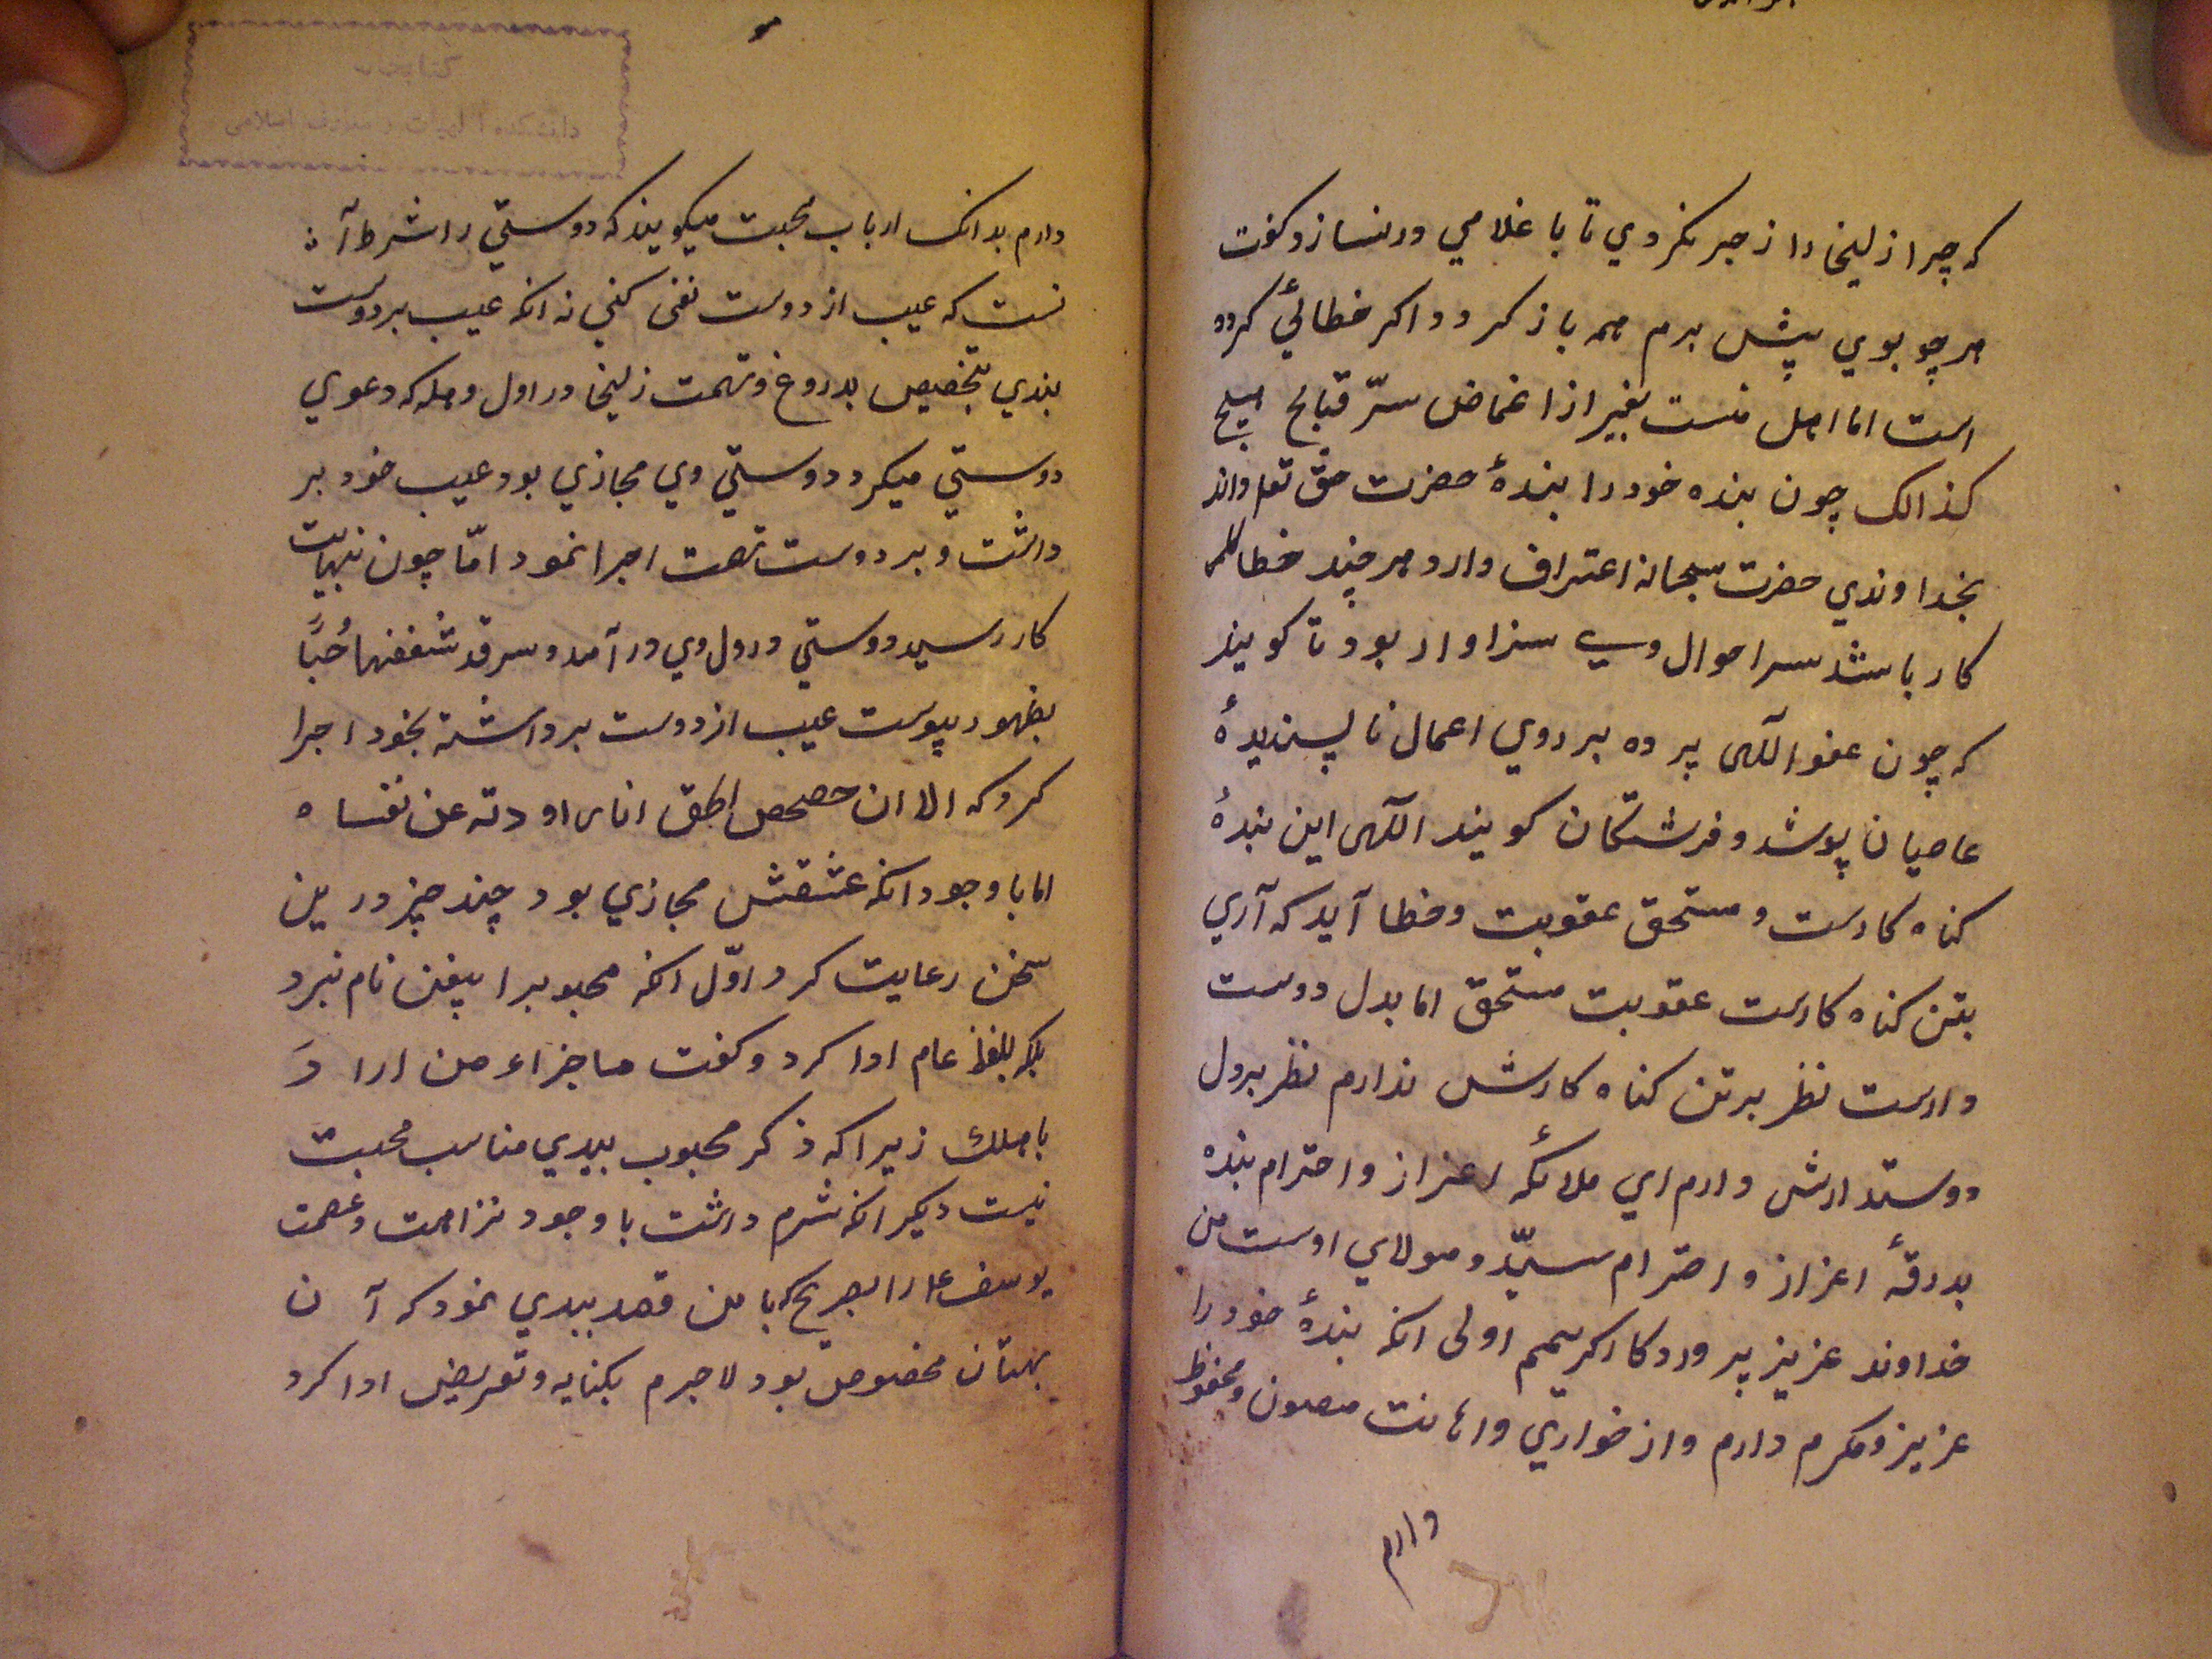 که چرا زلیخا را زجر نکردي تا با غلامي درنسازد کفت
هر چو بوي پیش برم همه باز کردد اکر خطائي کرده
است اما اهل منست بغیر از اغماض سرّ قبایح
کذالک چون بنده خود را بندهٔ حضرت حقّ داند
بخداوندي حضرت سبحانه اعتراف دارد هر چند خطا
کار باشد سر احوال وي سزاوار بود تا کویند
که چون عفو اللهی پرده بر روي اعمال ناپسندیدهٔ
عاصیان پوشد و فرشتکان کویند اللهی این بندهٔ
کناه کارست و مستحق عقوبت و خطا آید که آري
بتن کناه کارست عقوبت مستحق اما بدل دوست
دارست نظر برتن کناه کارش ندارم نظر بردل
دوستدارش دارم اي ملائکه اعزاز و احترام بنده
بدرقهٔ اعزاز و احترام سیّد و مولاي اوست من
خداوند عزیز پروردکار کریمم اولی انکه بندهٔ خود را
عزیز و مکرم دارم و از خواري و اهانت مصون و محفوظ
دارم
دارم بدانک ارباب محبت میکویند که دوستي را شرط آ
نست که عیب از دوست نفی کني نه انکه عیب بر دوست
بندي بتخصیص بدروغ و تهمت زلیخا در اول وهله که دعوي
دوستي میکرد دوستي وي مجازي بود عیب خود بر
داشت و بر دوست تهمت اجرا نمود امّا چون نهایت
کار رسید دوستي در دل وي در آمد و سر قد شغفها حُبًا
بظهور پیوست عیب از دوست برداشته بخود اجرا
کرد که الاان حصحص الحق انا راودته عن نفسه
اما با وجود انکه عشقش مجازي بود چند چیز درین
سخن رعایت کرد اوّل انکه محبوبرا نام نبرد
بلکه بلفظ عام ادا کرد و کفت ما جزاء من اراد
باهلك زیرا که ذکر محبوب ببدي مناسب محبت
نیست دیکر انکه شرم داشت با وجود نزاهت و عصمت
یوسف را بصریح که با من قصد ببدي نمود که آن
بهتان مخصوص بود لاجرم بکنایه و تعریض ادا کرد
کتابخانه
دانشکده الهیات و معارف اسلامی